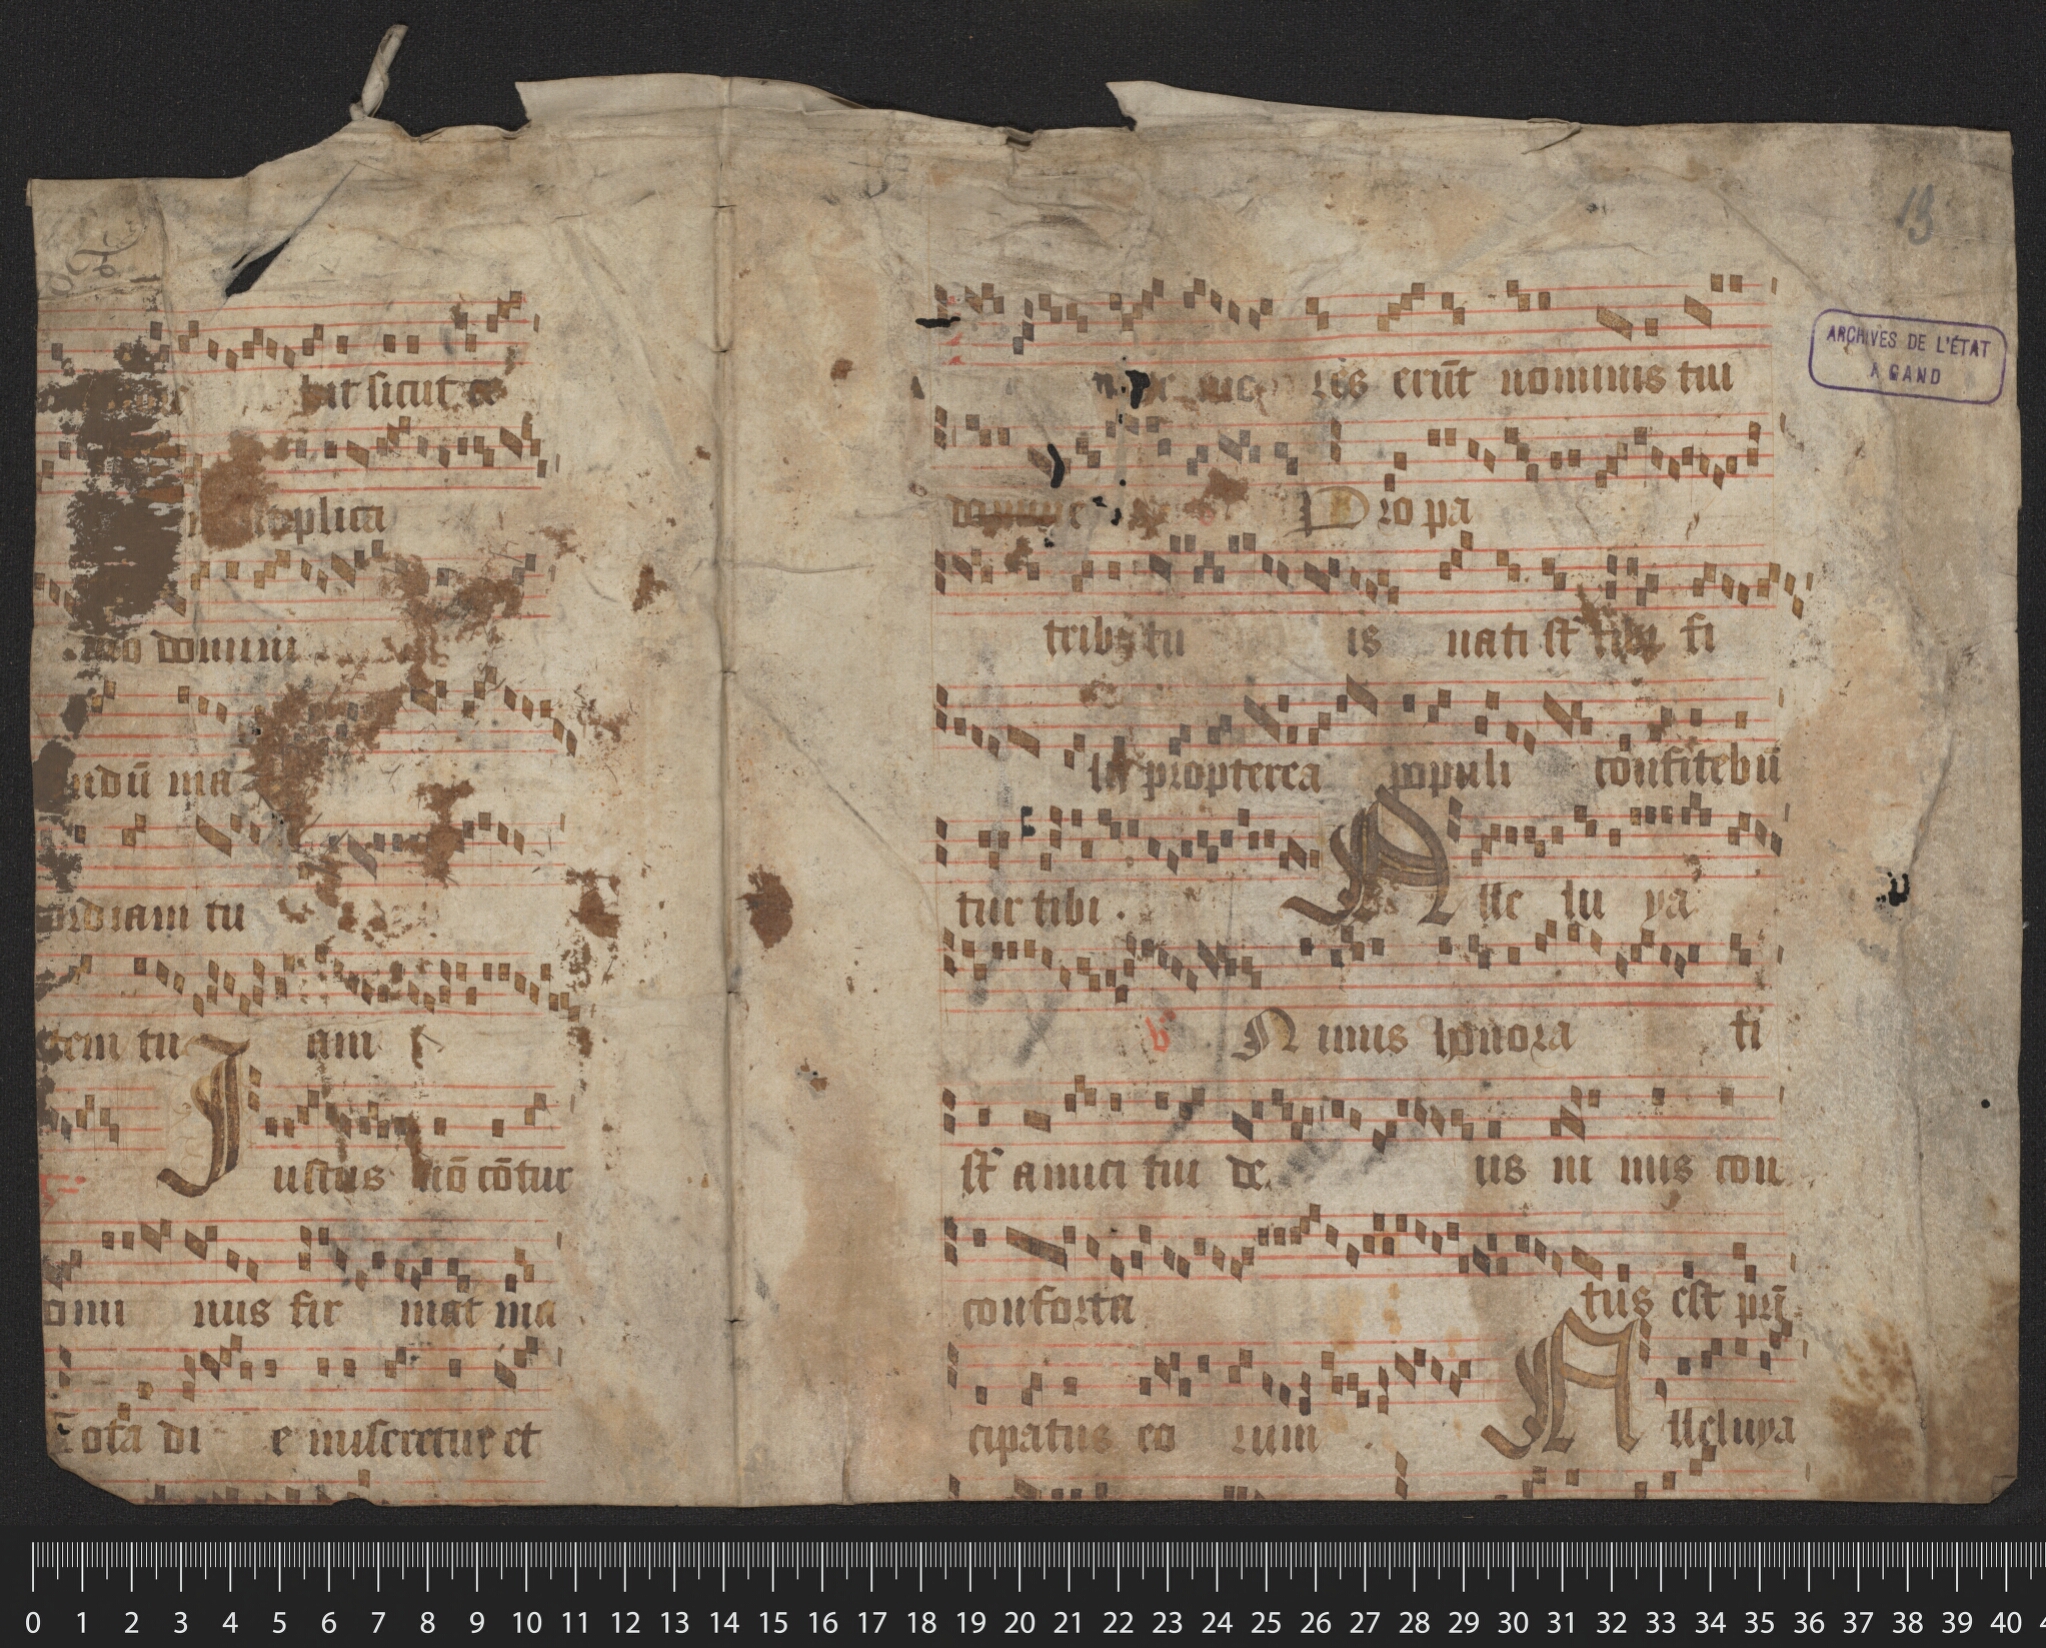 bit sicut ce
plica
mo domini
ndū ma
ordiam tu
tem tu am
Iustus nō cōtur
omi nus fir mat ma
Tota di e miseretur et
13
ARCHIVES DE L'ÉTAT
A GAND
res erūt nominis tui
domine Pro pa
tribꝫ tu is nati st tibi fi
lii propterea populi confitebū
tur tibi. Alle lu ya
Nimis honora ti
st amici tui de us ni mis con
conforta tus est pri
cipatus eo rum. Alleluya
0 1 2 3 4 5 6 7 8 9 10 11 12 13 14 15 16 17 18 19 20 21 22 23 24 25 26 27 28 29 30 31 32 33 34 35 36 37 38 39 40